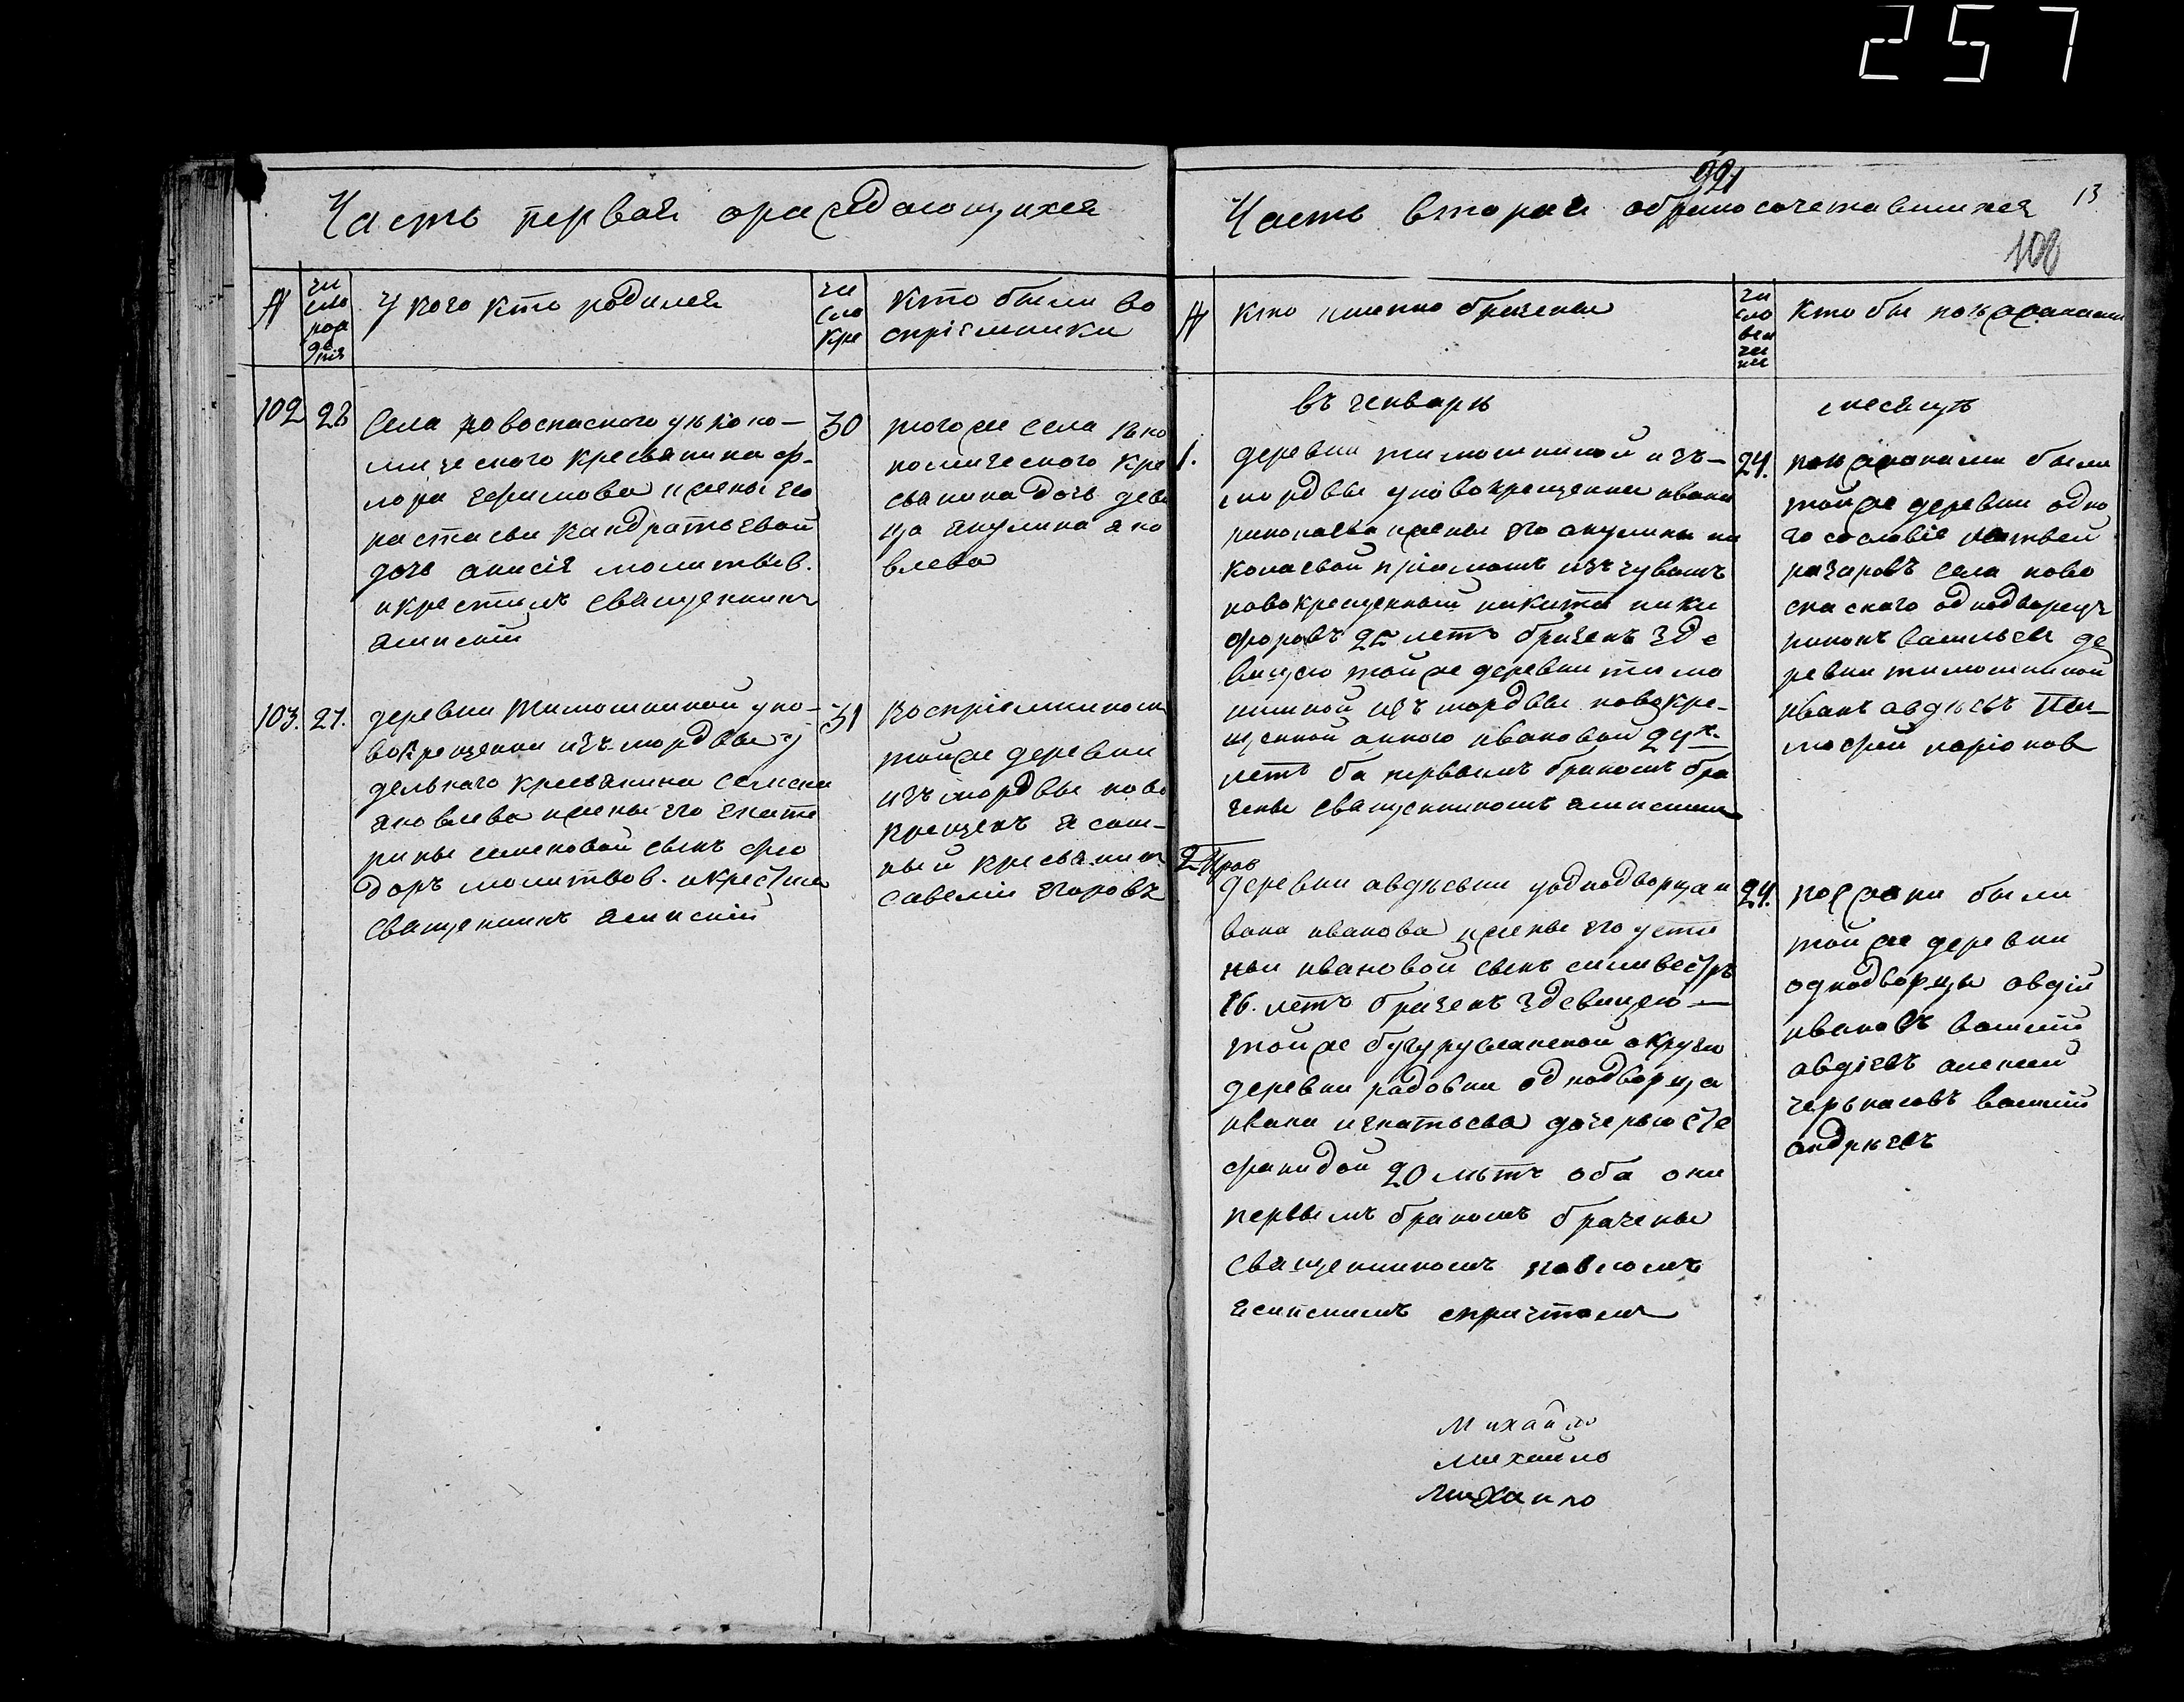 257
Часть первая ораждающихся
№
чи
сло
рож
де
нія
У кого кто родился
чи
сло
кре
Кто были во
спріемники
102
28
Села новоспаского уѣконо-
мическаго кресьянина ф-
лора ефимова ижены его
настасьи кандратьевой
дочь анисія молитвов.
икрестилъ священникъ
ясинскій
30
тогоже села ѣко
номическаго кре
сьянина дочь деви
ца акулина яко
влева
103.
27.
деревни тимошкиной уно-
вокрещенна изъ мордвы у
дельнаго кресьянина семена
яковлева ижены его екате
рины семеновой сынъ фео
доръ молитвов. икрестил
священникъ ясинскій
31
воспріемником
тойже деревни
изъ мордвы ново
крещенъ ясаш-
ный кресьянин
савелій егоровъ
Часть вторая обракосочетавшихся
13
108
№
кто имянно брачены
чи
сло
вен
ча
ния
Кто бы поѣзжанами
въ генваря
месяцѣ
1.
деревни тимошкиной изъ-
мордвы уновокрещенна ивана
николаева ижены его акулины ни
колаевой пріимошъ изъ чувашъ
новокрещенный никита ники
форовъ 25 летъ браченъ зде
вицею тойже деревни тимо
шкиной изъ мордвы новокре-
щенной анною ивановой 24х.
летъ ба первымъ бракомъ бра
чены священникомъ ясинским
24.
поѣзжанами были
тойже деревни одно
го сословіе матвей
назаровъ села ново
спаского однодворецъ
кононъ васильевъ де
ревни тимошкиной
иванъ авдѣевъ Ти-
мофей ларіонов
2
деревни авдѣевки уоднодворца и
вана иванова ижены его усти
ньи ивановой сынъ сильвестръ
16. летъ браченъ здевицею-
тойже бугурусланской округи
деревни радовки однодворца
ивана игнатьева дочерью сте
фанидой 20 лѣтъ оба они
первымъ бракомъ брачены
священникомъ павломъ
ясинскимъ спричтомъ
24.
поезжани были
тойже деревни
однодворцы авдій
ивановъ василій
авдіевъ алексей
черкасовъ василій
андрѣевъ
Михайло
михайло
Михаило